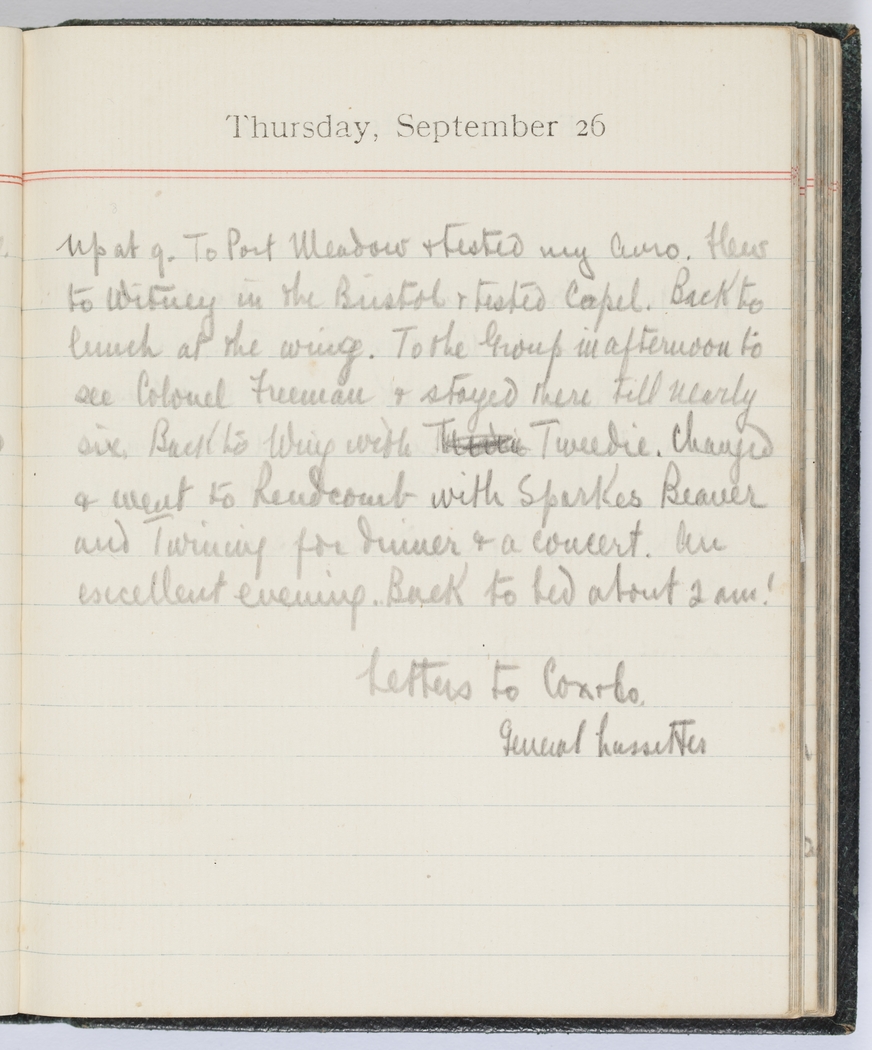 Thursday, September 26
Up at 9. To Port Meadow & tested my Avro. Flew
to Witney in the Bristol & tested Capel. Back to
lunch at the wing. To the Group in afternoon to
see Colonel Freeman & stayed there till nearly
six. Back to Wing with Tweedie. Changed
& went to Rendcomb with Sparkes Beaver
and Twining for dinner & a concert. An
excellent evening. Back to bed about 2 am!
Letters to Cox & Co.
General Lassetter